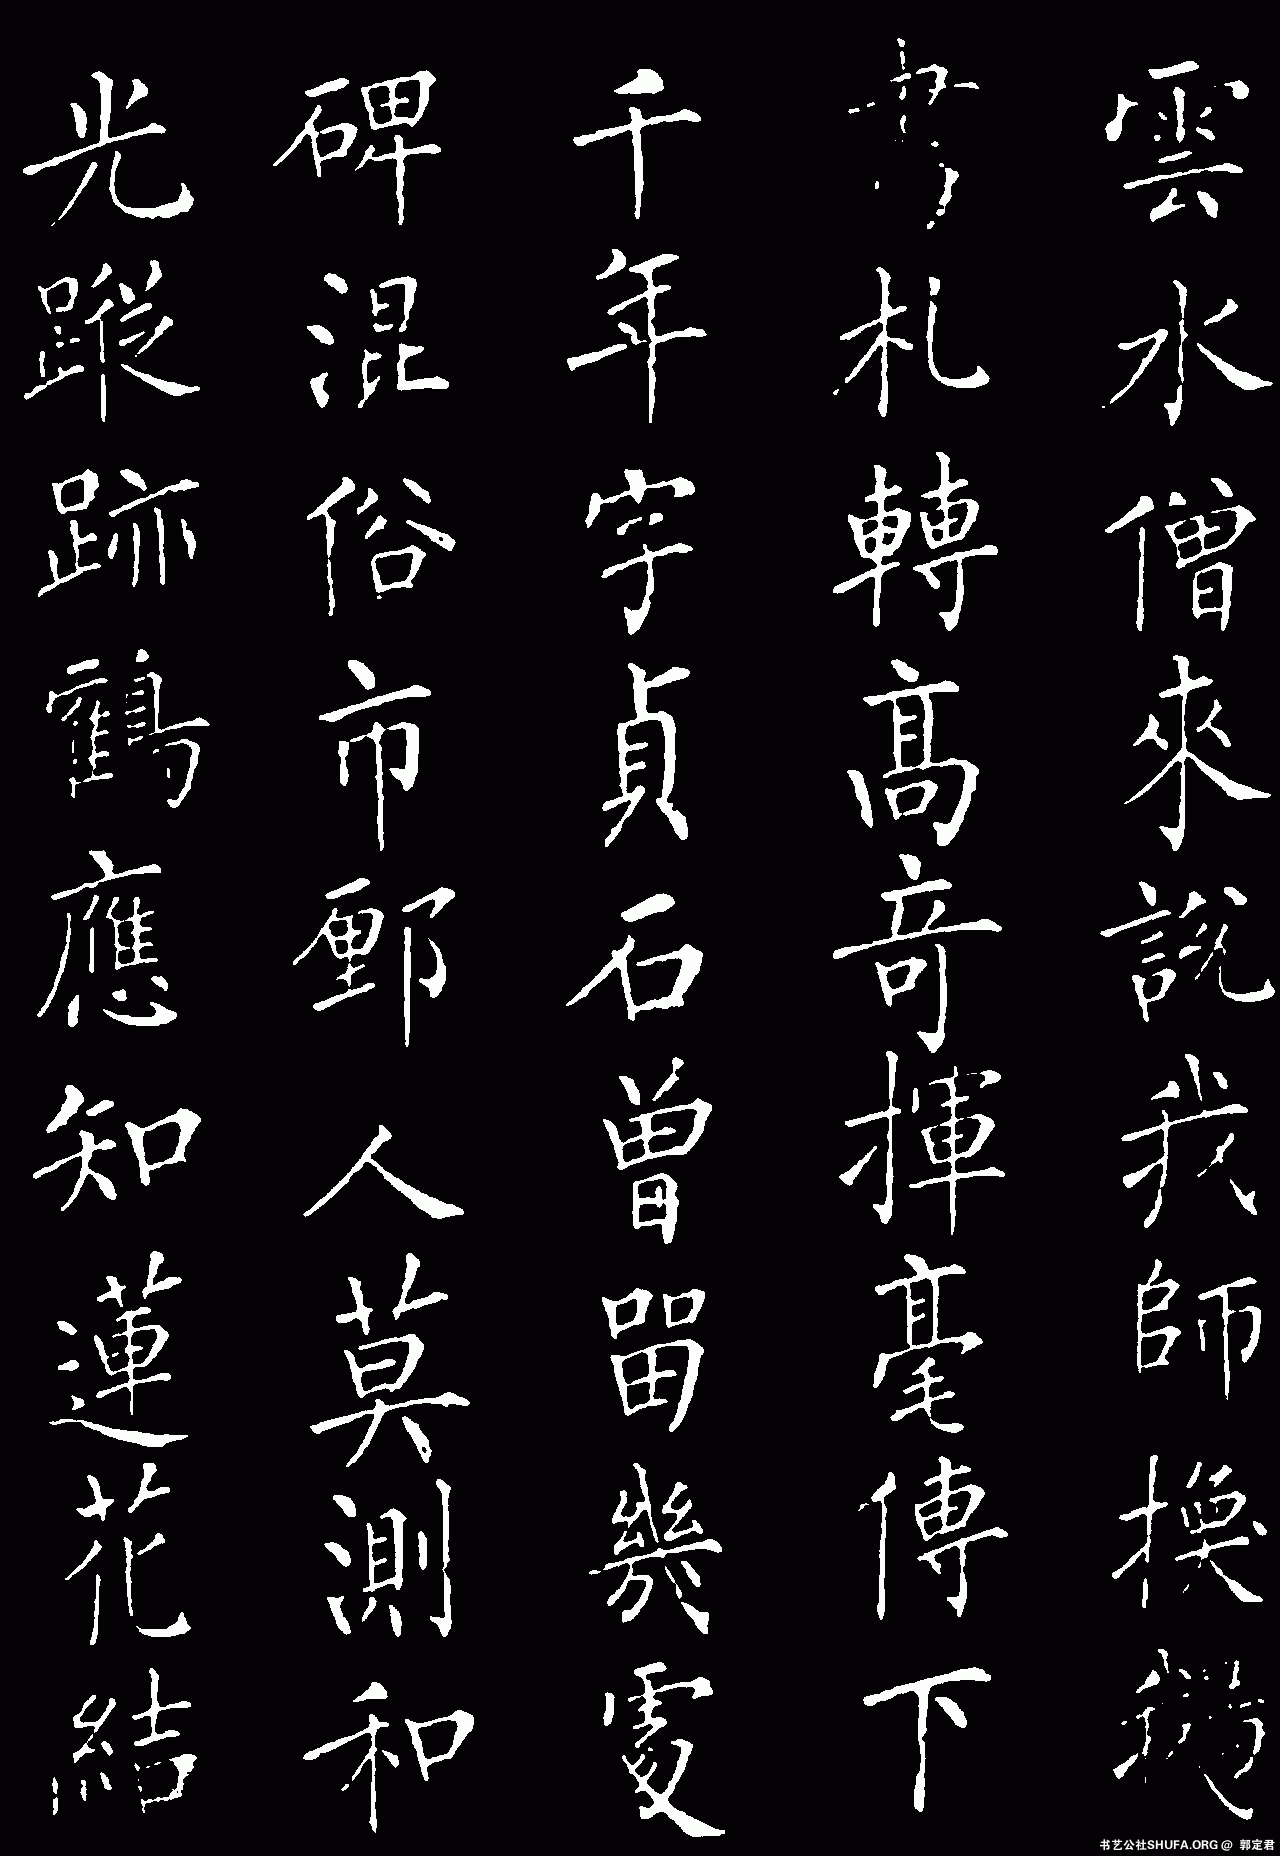 雲水僧來說我師換鵝
札轉高奇揮毫傳下
千年字貞石曾留幾處
碑混俗市鄽人莫測和
光蹤跡鶴應知蓮花結
书艺公社SHUFA.ORG @ 郭定君